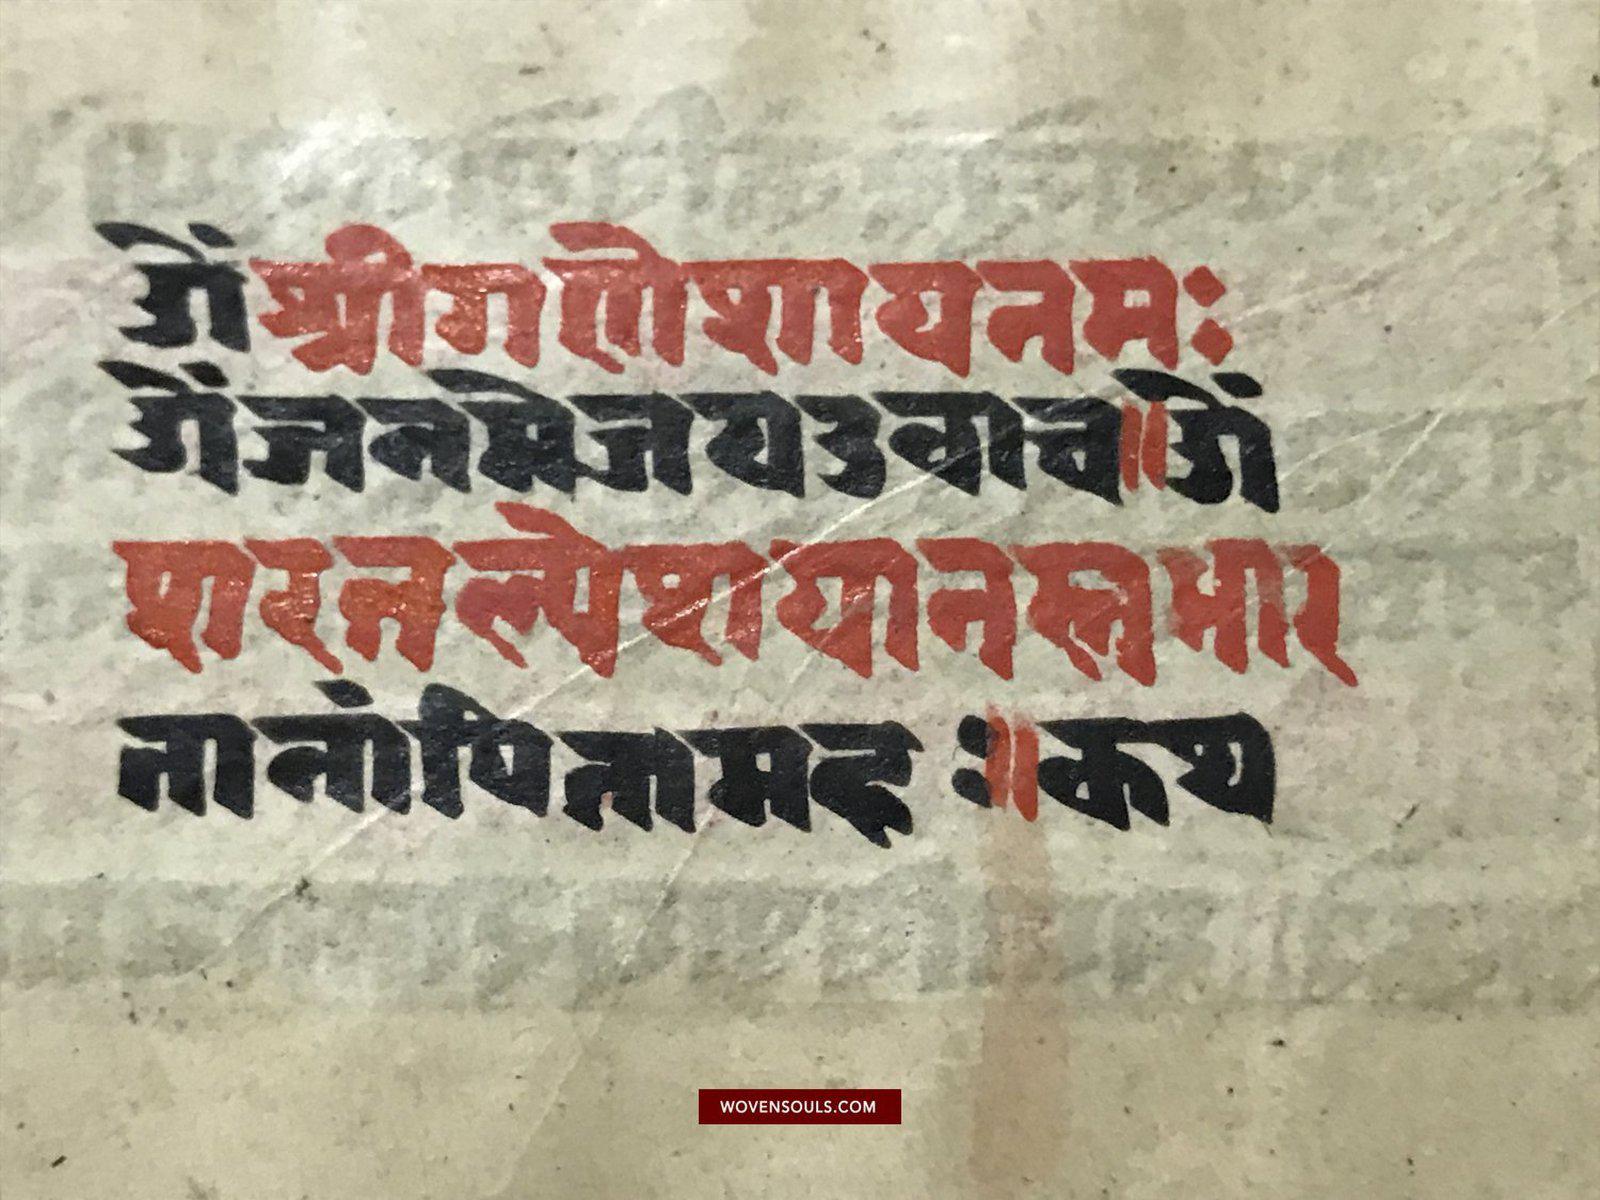 ॐश्रीगणेशायनमः
ॐजनमेजयउवाच॥ॐ
षारतल्पेशयानस्तुभार
तानांपितामह ः॥कथ
WOVENSOULS.COM